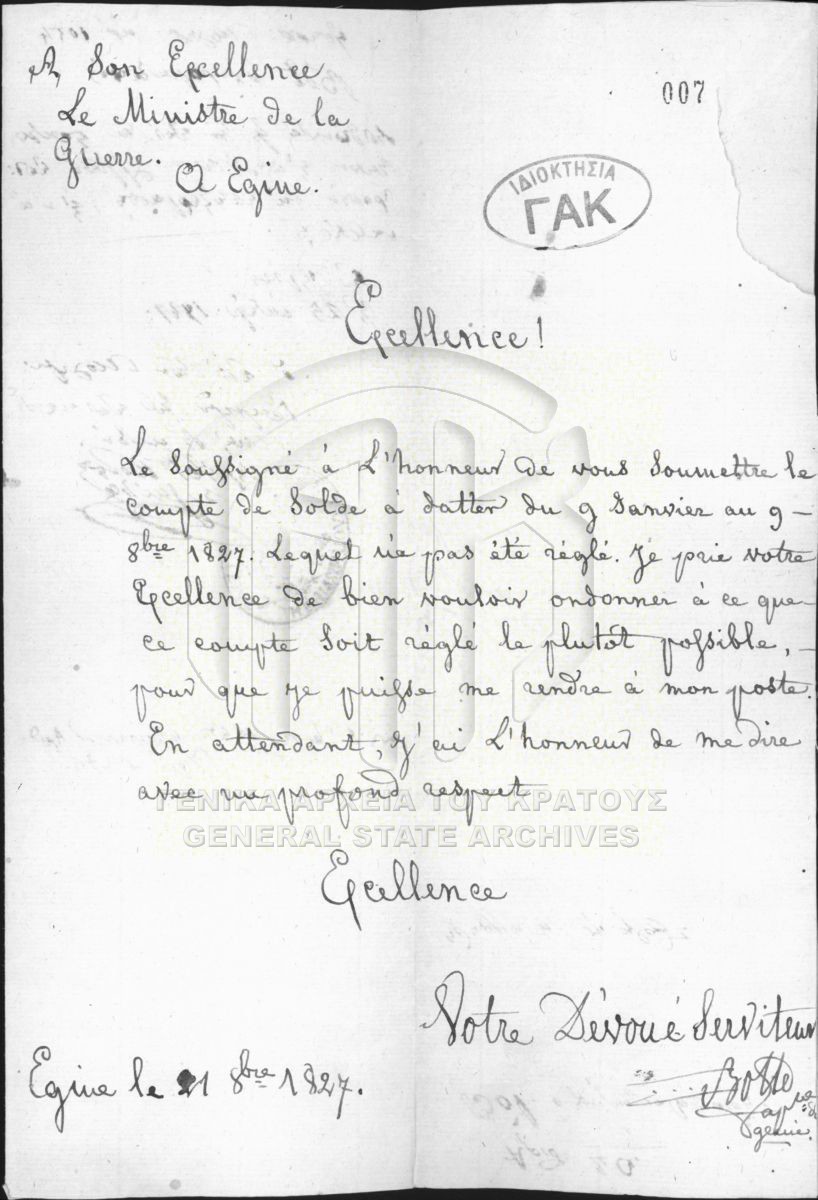 A Son Excellence
Le Ministre de la
Guerre.
A Egine.
007
ΙΔΙΟΚΤΗΣΙΑ
ΓΑΚ
Excellence!
Le Soussigné à L'honneur de vous Soumettre le
compte de Solde à datter du 9 Janvier au 9
8bre 1827. Lequel n'a pas été réglé. Je prie votre
Excellence de bien vouloir ordonner à ce que
ce compte Soit réglé le plutôt possible,
pour que je puisse me rendre à mon poste.
En attendant, J'ai L'honneur de me dire
avec un profond respect
ΓΕΝΙΚΑ ΑΡΧΕΙΑ ΤΟΥ ΚΡΑΤΟΥΣ
GENERAL STATE ARCHIVES
Excellence
Votre Dévoué Serviteur
Egine le 21 8bre 1827.
génie.